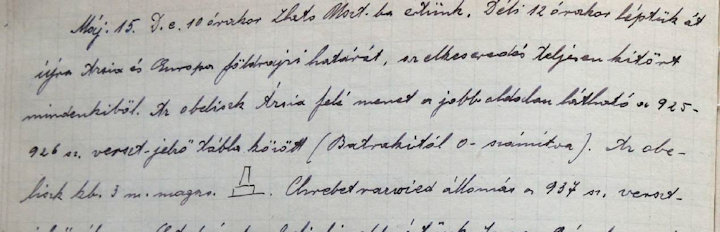 Máj. 15. D.e. 10 órakor Zlato Moszt-ba értünk. Déli 12 órakor léptük át
újra Ázsia és Europa földrajzi határát, az elkeseredés teljesen kitört
mindenkiből. Az obeliszk Ázsia felé menet a jobb oldalon látható a 925-
926 sz. verszt-jelző tábla között (Batrakitól 0- számítva). Az obe-
liszk kb. 3 m. magas. állomás a 937 sz. verszt-